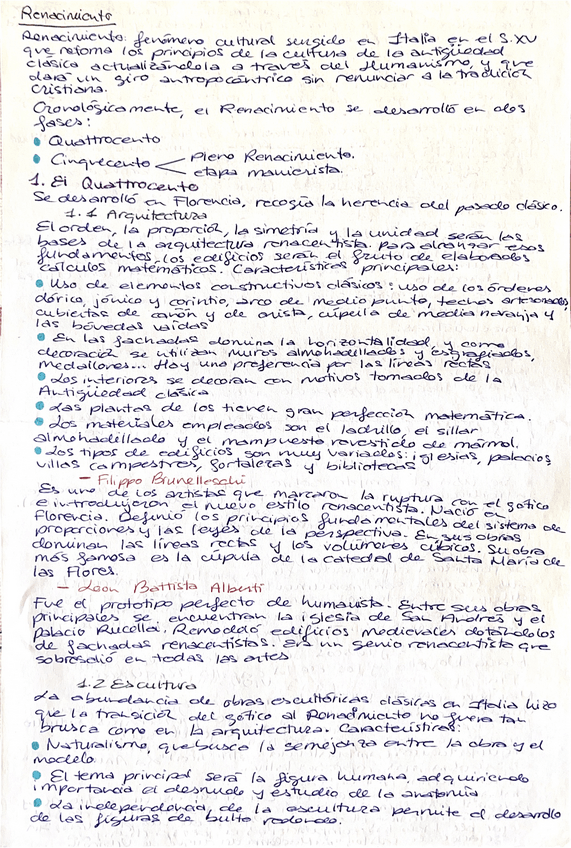 Renacimiento
Renacimiento: fenómeno cultural surgido en Italia en el S.XV
que retoma los principios de la cultura de la antigüedad
clásica actualizándola a través del Humanismo, y que
dará un giro antropocéntrico sin renunciar a la tradición
cristiana.
Cronológicamente, el Renacimiento se desarrolló en dos
fases:
• Quattrocento
• Cinquecento < Pleno Renacimiento.
etapa manierista.
1. El Quattrocento
Se desarrolló en Florencia, recogía la herencia del pasado clásico.
1.1 Arquitectura
El orden, la proporción, la simetría y la unidad serán las
bases de la arquitectura renacentista. Para alcanzar esos
fundamentos, los edificios serán el fruto de elaborados
cálculos matemáticos. Características principales:
• Uso de elementos constructivos clásicos: uso de los órdenes
dórico, jónico y corintio, arco de medio punto, techos artesonados,
cubiertas de cañón y de arista, cúpula de media naranja y
las bóvedas vaídas
• En las fachadas domina la horizontalidad, y como
decoración se utilizan muros almohadillados y esgrafiados,
medallones... Hay una preferencia por las líneas rectas
• Los interiores se decoran con motivos tomados de la
Antigüedad clásica
• Las plantas de los tienen gran perfección matemática.
• Los materiales empleados son el ladrillo, el sillar
almohadillado y el mampuesto revestido de mármol.
• Los tipos de edificios son muy variados: iglesias, palacios,
villas campestres, fortalezas y bibliotecas
- Filippo Brunelleschi
Es uno de los artistas que marcaron la ruptura con el gótico
e introdujeron el nuevo estilo renacentista. Nació en
Florencia. Definió los principios fundamentales del sistema de
proporciones y las leyes de la perspectiva. En sus obras
dominan las líneas rectas y los volúmenes cúbicos. Su obra
más famosa es la cúpula de la catedral de Santa María de
las Flores.
- Leon Battista Alberti
Fue el prototipo perfecto de humanista. Entre sus obras
principales se encuentran la iglesia de San Andrés y el
Palacio Rucellai. Remodeló edificios medievales dotándolos
de fachadas renacentistas. Es un genio renacentista que
sobresalió en todas las artes
1.2 Escultura
La abundancia de obras escultóricas clásicas en Italia hizo
que la transición del gótico al Renacimiento no fuera tan
brusca como en la arquitectura. Características:
• Naturalismo, que busca la semejanza entre la obra y el
modelo
• El tema principal será la figura humana, adquiriendo
importancia el desnudo y estudio de la anatomía
• La independencia de la escultura permite el desarrollo
de las figuras de bulto redondo.